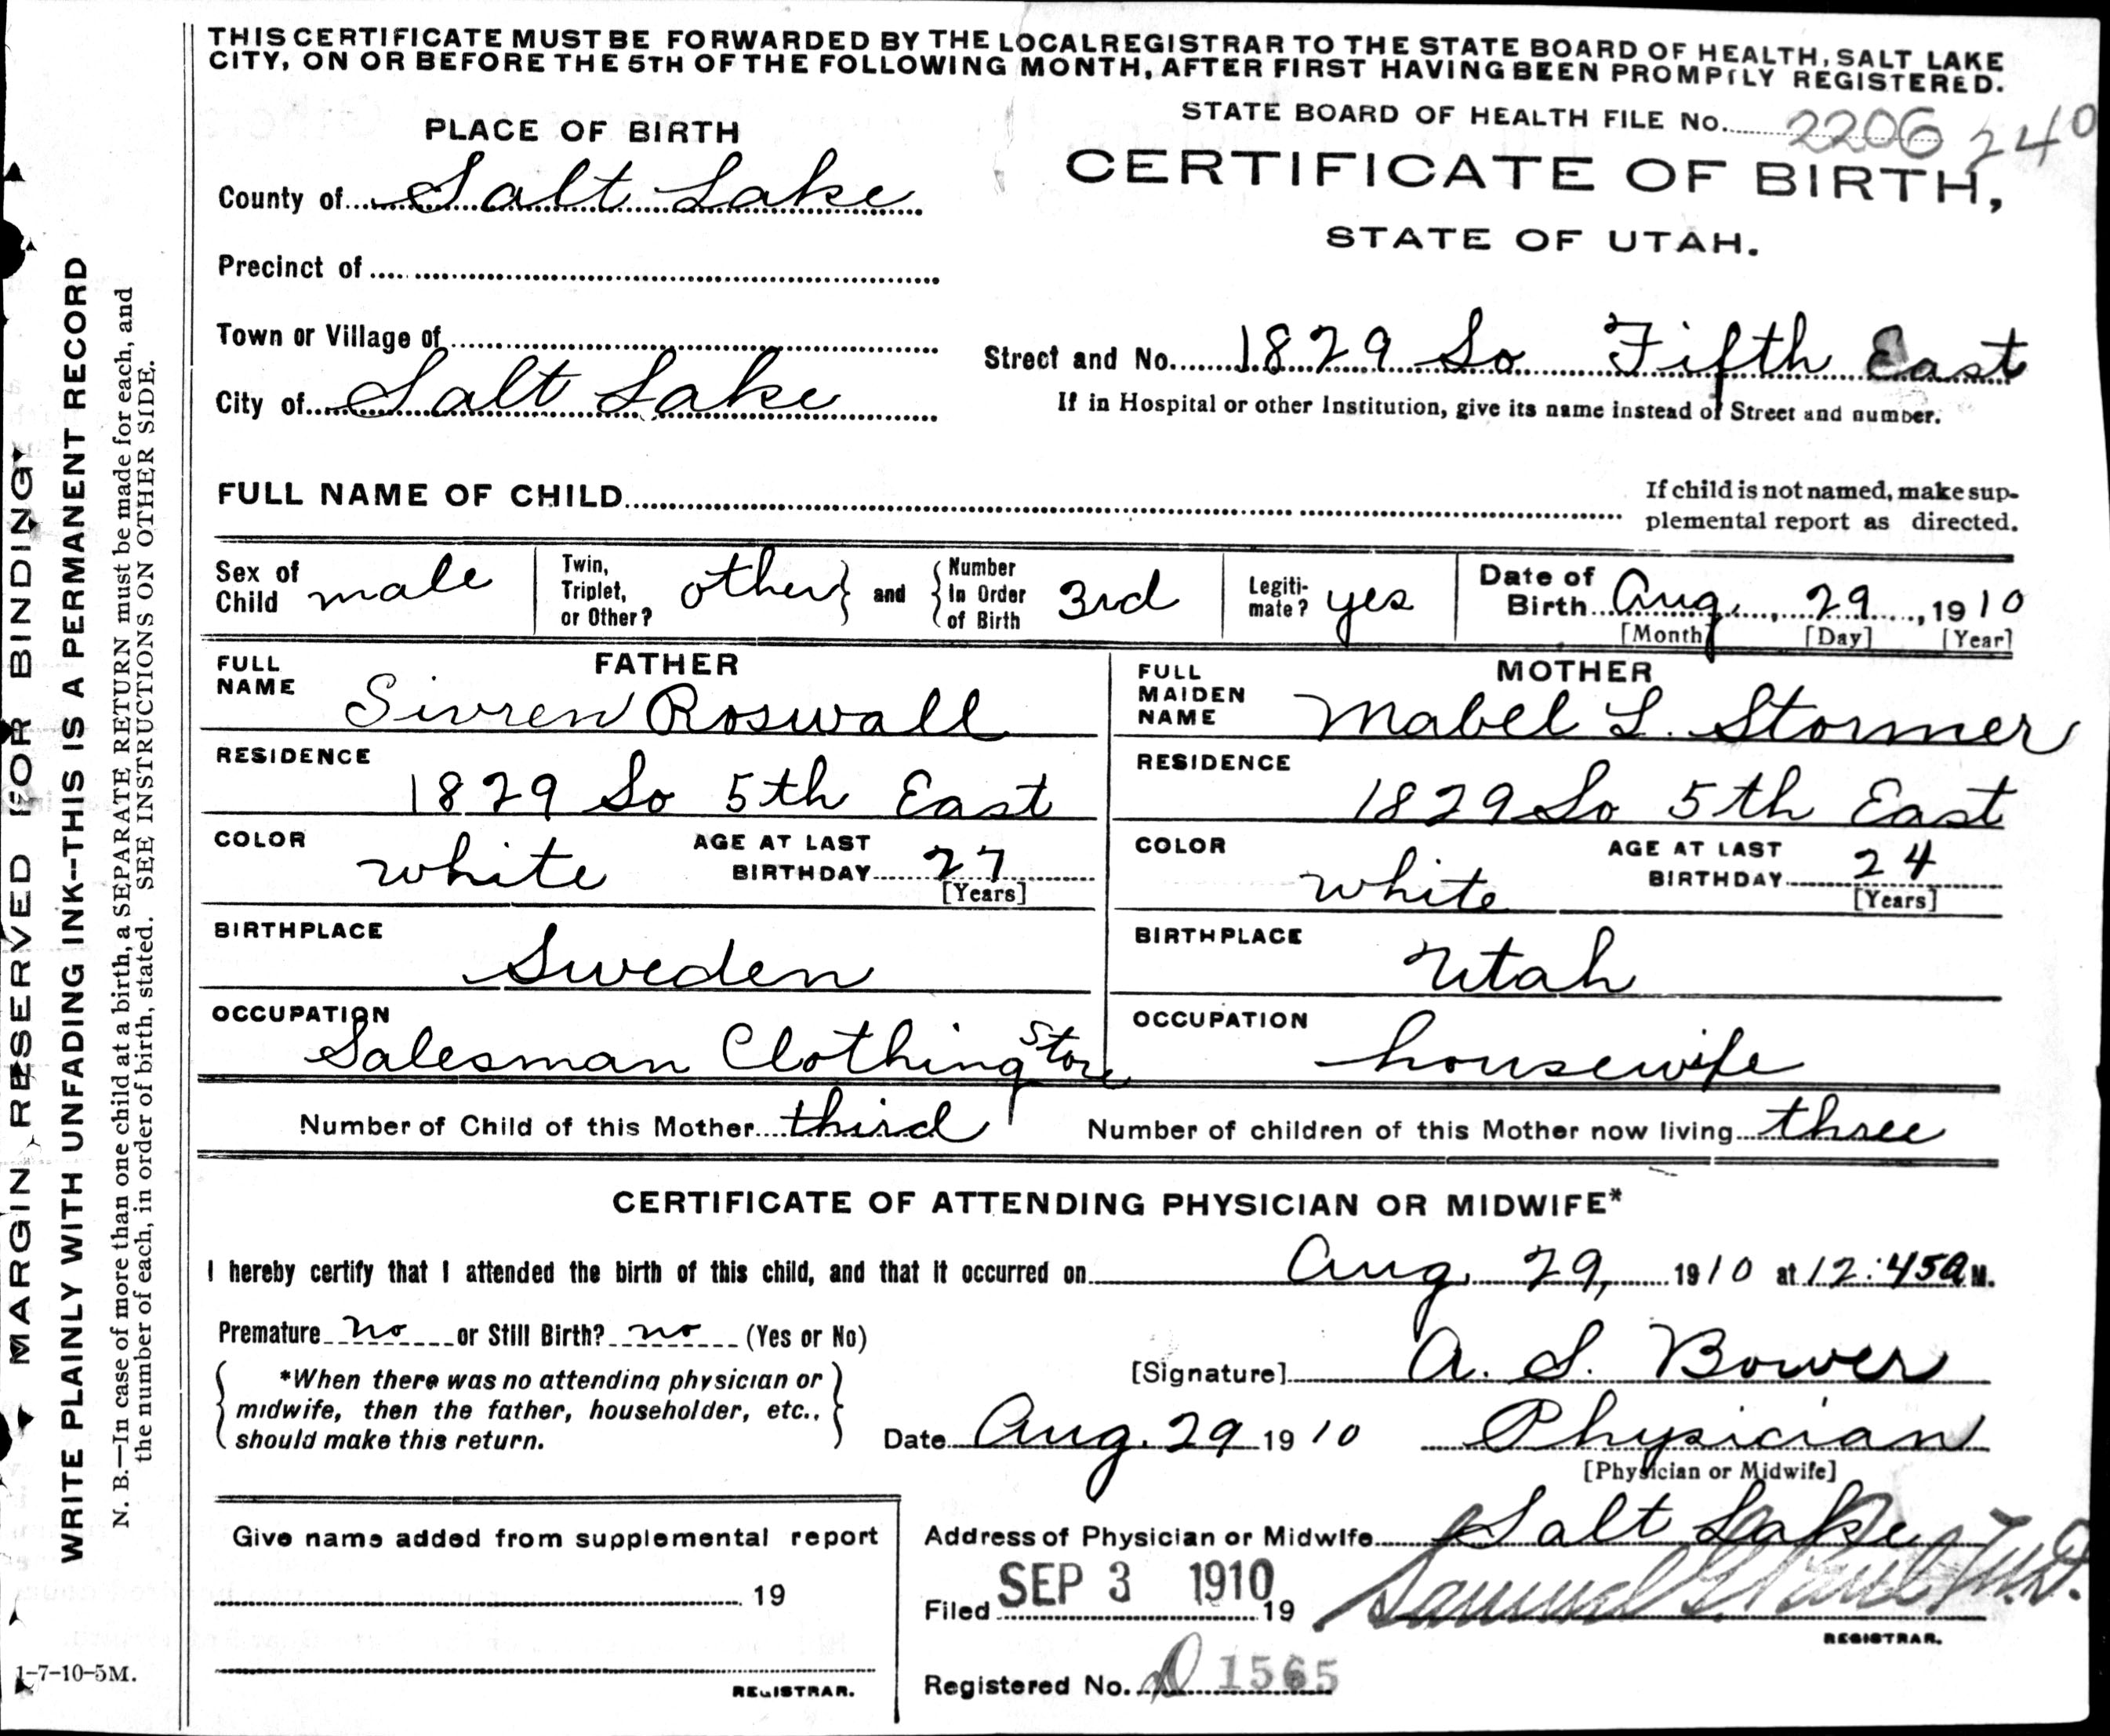 THIS CERTIFICATE MUST BE FORWARDED BY THE LOCAL REGISTRAR TO THE STATE BOARD OF HEALTH, SALT LAKE
CITY, ON OR BEFORE THE 5TH OF THE FOLLOWING MONTH, AFTER FIRST HAVING BEEN PROMPTLY REGISTERED.
STATE BOARD OF HEALTH FILE No. 2206 240
PLACE OF BIRTH
CERTIFICATE OF BIRTH,
STATE OF UTAH.
County of Salt Lake
Precinct of
Town or Village of
City of Salt Lake
Street and No. 1829 So Fifth East
If in Hospital or other Institution, give its name instead of Street and number.
FULL NAME OF CHILD
If child is not named, make sup-
plemental report as directed.
Sex of Child male
Twin, Triplet, or Other? other and Number In Order of Birth 3rd
Legiti-mate? yes
Date of Birth Aug. 29, 1910
[Month] [Day] [Year]
FATHER
FULL NAME Sivren Roswall
RESIDENCE
1829 So 5th East
COLOR white AGE AT LAST BIRTHDAY 27
[Years]
BIRTHPLACE
Sweden
OCCUPATION
Salesman Clothing Store
MOTHER
FULL MAIDEN NAME Mabel L. Stormer
RESIDENCE
1829 So 5th East
COLOR white AGE AT LAST BIRTHDAY 24
[Years]
BIRTHPLACE
Utah
OCCUPATION
housewife
Number of Child of this Mother third Number of children of this Mother now living three
CERTIFICATE OF ATTENDING PHYSICIAN OR MIDWIFE*
I hereby certify that I attended the birth of this child, and that it occurred on Aug. 29, 1910 at 12:45 a M.
Premature no or Still Birth? no (Yes or No)
*When there was no attending physician or
midwife, then the father, householder, etc.,
should make this return.
[Signature] A. S. Bower
Date Aug. 29 1910 Physician
[Physician or Midwife]
Give name added from supplemental report
19
REGISTRAR.
Address of Physician or Midwife Salt Lake
Filed SEP 3 1910 19 Samuel G. Paul M.D.
REGISTRAR.
Registered No. 1565
MARGIN RESERVED FOR BINDING
WRITE PLAINLY WITH UNFADING INK--THIS IS A PERMANENT RECORD
N. B.—In case of more than one child at a birth, a SEPARATE RETURN must be made for each, and
the number of each, in order of birth, stated. SEE INSTRUCTIONS ON OTHER SIDE.
1-7-10-5M.